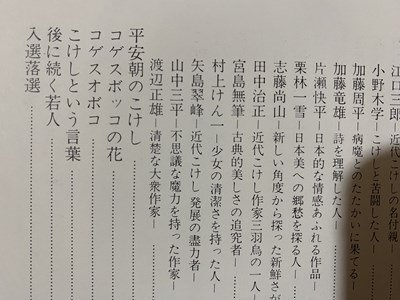 江口三郎―近代こけしの名付親
小野木学―こけしと苦闘した人―
加藤周平―病魔とのたたかいに果てる―
加藤竜雄―詩を理解した人―
片瀬快平―日本的な情感あふれる作品―
栗林一雪―日本美への郷愁を探る人―
志藤尚山―新しい角度から探った新鮮さが
田中治正―近代こけし作家三羽烏の一人
宮島無筆―古典的美しさの追究者―
村上けん一―少女の清潔さを持った人―
矢島翠峰―近代こけし発展の盡力者―
山中三平―不思議な魔力を持った作家―
渡辺正雄―清楚な大衆作家―
平安朝のこけし
コゲスボッコの花
コゲスオボコ
こけしという言葉
後に続く若人
入選落選